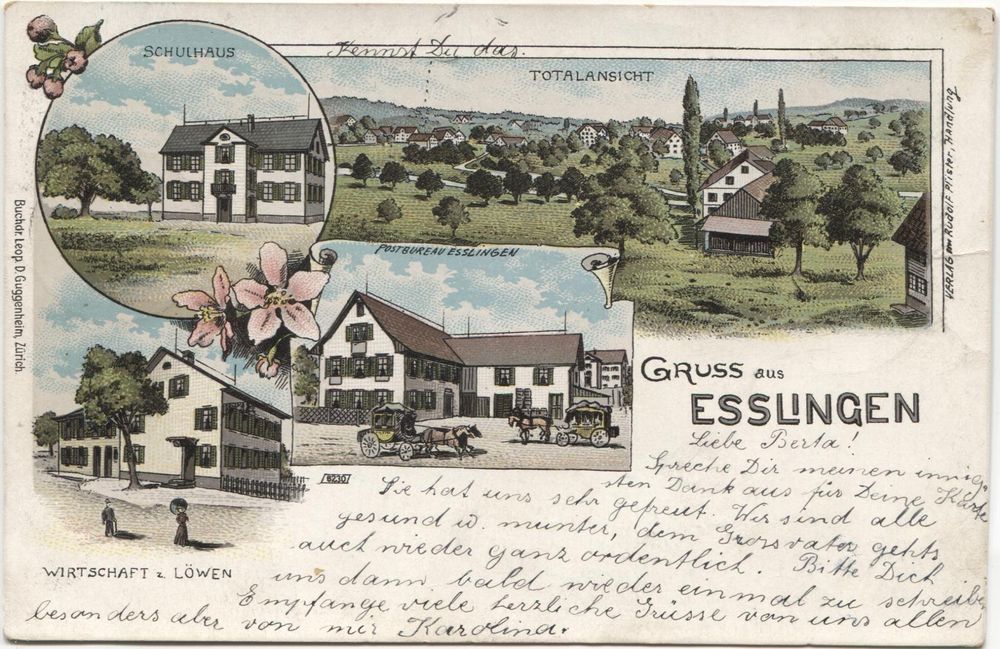 SCHULHAUS
Kennst Du das.
TOTALANSICHT
POSTBUREAU ESSLINGEN
VERLAG von RUDOLF Pfister, HANDLUNG
Buchdr. Leop. D. Guggenheim, Zürich.
GRUSS aus
ESSLINGEN
WIRTSCHAFT z. LÖWEN
6230
Liebe Berta!
Spreche Dir meinen innig
sten Dank aus für Deine Karte
Sie hat uns sehr gefreut. Wir sind alle
gesund u. munter, dem Grossvater gehts
auch wieder ganz ordentlich. Bitte Dich
uns dann bald wieder einmal zu schreiben
Empfange viele herzliche Grüsse von uns allen
besonders aber von mir Karolina.